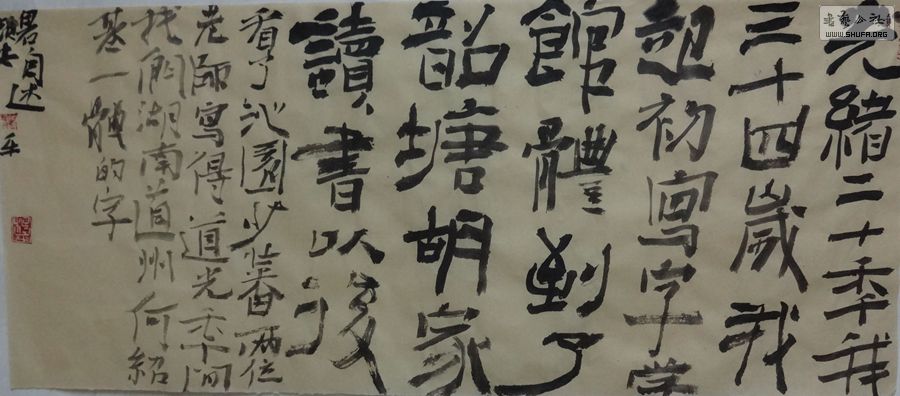 光緒二十季我
三十四歲我
起初寫字學
館體到了
韶塘胡家
讀書以後
看了沁園少蕃兩位
老師寫得道光季间
我们湖南道州何紹
基一體的字
自述
書藝公社
WWW.SHUFA.ORG